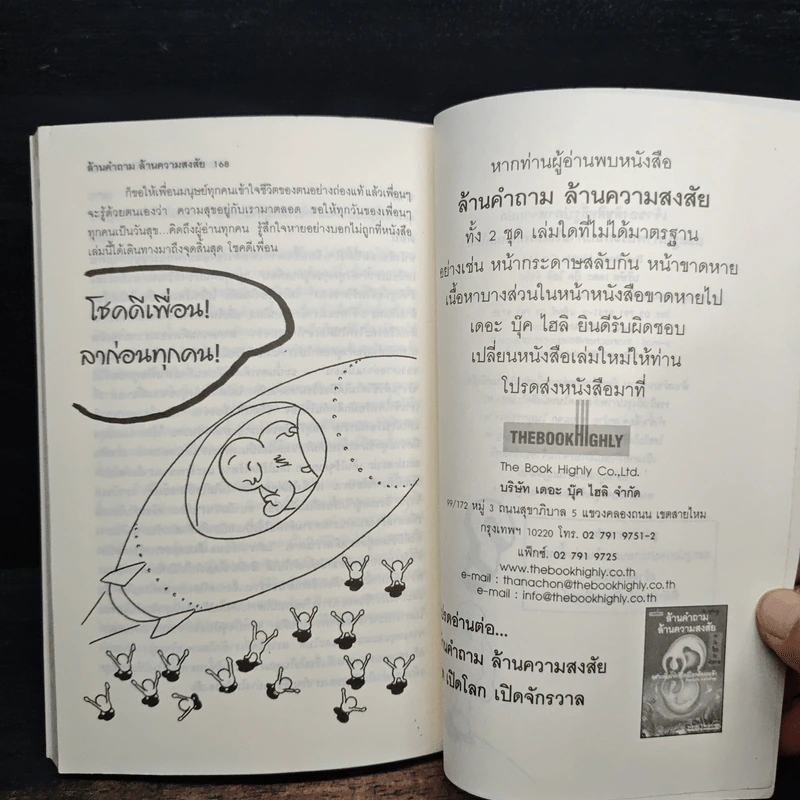 ล้านคำถาม ล้านความสงสัย 168
ก็ขอให้เพื่อนมนุษย์ทุกคนเข้าใจชีวิตของตนอย่างถ่องแท้ แล้วเพื่อนๆ
จะรู้ด้วยตนเองว่า ความสุขอยู่กับเรามาตลอด ขอให้ทุกวันของเพื่อนๆ
ทุกคนเป็นวันสุข...คิดถึงผู้อ่านทุกคน รู้สึกใจหายอย่างบอกไม่ถูกที่หนังสือ
เล่มนี้ได้เดินทางมาถึงจุดสิ้นสุด โชคดีเพื่อน
โชคดีเพื่อน!
ลาก่อนทุกคน!
หากท่านผู้อ่านพบหนังสือ
ล้านคำถาม ล้านความสงสัย
ทั้ง 2 ชุด เล่มใดที่ไม่ได้มาตรฐาน
อย่างเช่น หน้ากระดาษสลับกัน หน้าขาดหาย
เนื้อหาบางส่วนในหน้าหนังสือขาดหายไป
เดอะ บุ๊ค ไฮลิ ยินดีรับผิดชอบ
เปลี่ยนหนังสือเล่มใหม่ให้ท่าน
โปรดส่งหนังสือมาที่
THEBOOKHIGHLY
The Book Highly Co.,Ltd.
บริษัท เดอะ บุ๊ค ไฮลิ จำกัด
99/172 หมู่ 3 ถนนสุขาภิบาล 5 แขวงคลองถนน เขตสายไหม
กรุงเทพฯ 10220 โทร. 02 791 9751-2
แฟ็กซ์. 02 791 9725
www.thebookhighly.co.th
e-mail : thanachon@thebookhighly.co.th
e-mail : info@thebookhighly.co.th
อ่านต่อ...
ล้านความสงสัย
เปิดโลก เปิดจักรวาล
ล้านคำถาม
ล้านความสงสัย